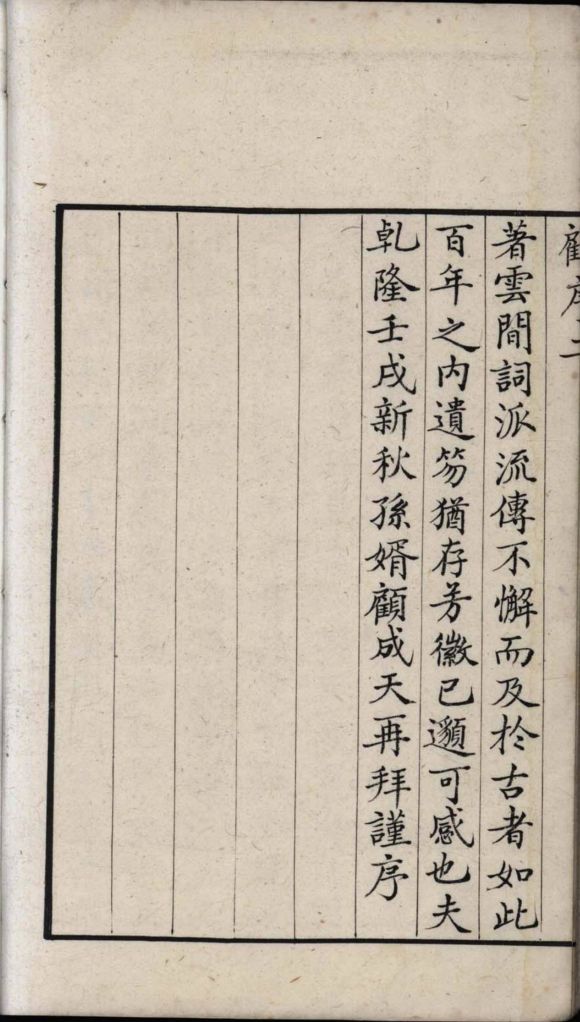 顧序二
著雲間詞派流傳不懈而及於古者如此
百年之內遺笏猶存芳徽已邈可感也夫
乹隆壬戌新秋孫婿顧成天再拜謹序